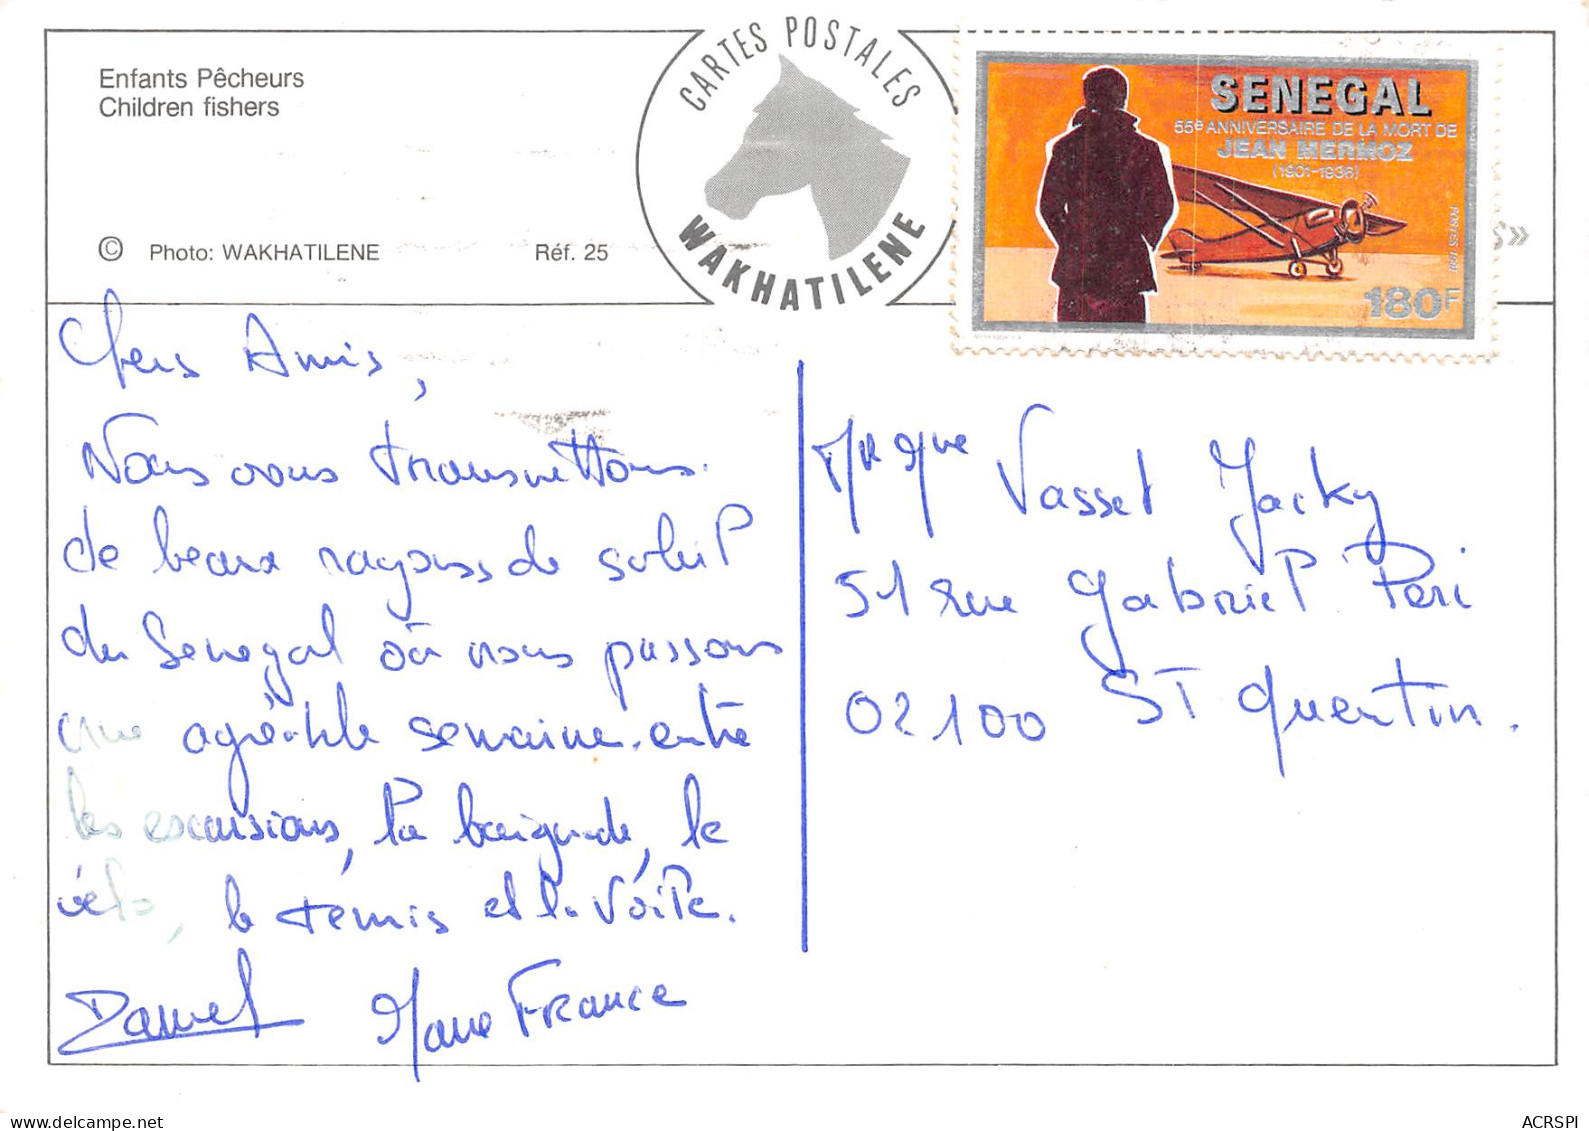 Enfants Pêcheurs
Children fishers
© Photo: WAKHATILENE Réf. 25
CARTES POSTALES
WAKHATILENE
SENEGAL
55e ANNIVERSAIRE DE LA MORT DE
JEAN MERMOZ
(1901-1936)
POSTES 1991
180F
S»
Chers Amis,
Nous vous transmettons
de beaux rayons de soleil
du Senegal où nous passons
une agréable semaine entre
les escursions, la baignade, le
vélo, le tennis et la voile.
Daniel Marie France
Mr Mme Vasset Jacky
51 rue Gabriel Peri
02100 ST Quentin.
www.delcampe.net
ACRSPI